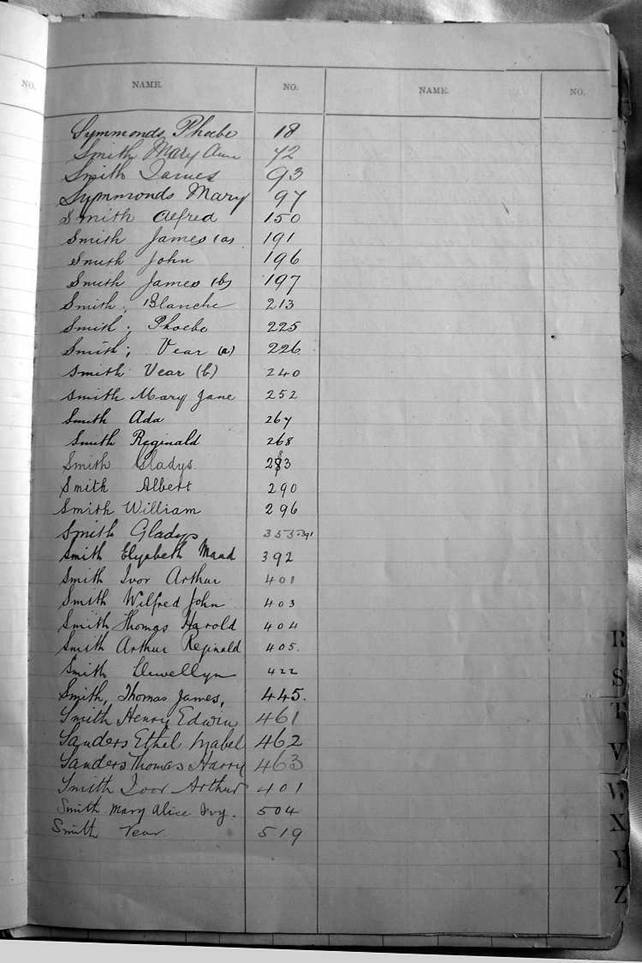 NO.
NAME. NO. NAME. NO.
Symmonds, Phoebe 18
Smith Mary Ann 42
Smith James 93
Symmonds Mary 97
Smith Alfred 150
Smith James (a) 191
Smith John 196
Smith James (b) 197
Smith, Blanche 213
Smith, Phoebe 225
Smith, Vear (a) 226
Smith Vear (b) 240
Smith Mary Jane 252
Smith Ada 267
Smith Reginald 268
Smith Gladys 283
Smith Albert 290
Smith William 296
Smith Gladys 353-391
Smith Elizabeth Maud 392
Smith Ivor Arthur 401
Smith Wilfred John 403
Smith Thomas Harold 404
Smith Arthur Reginald 405.
Smith Llewellyn 422
Smith, Thomas James, 445.
Smith Henry Edwin 461
Sanders Ethel Isabel 462
Sanders Thomas Harry 463
Smith Ivor Arthur 401
Smith Mary Alice Ivy. 504
Smith Vear 519
R
S
T
V
W
X
Y
Z